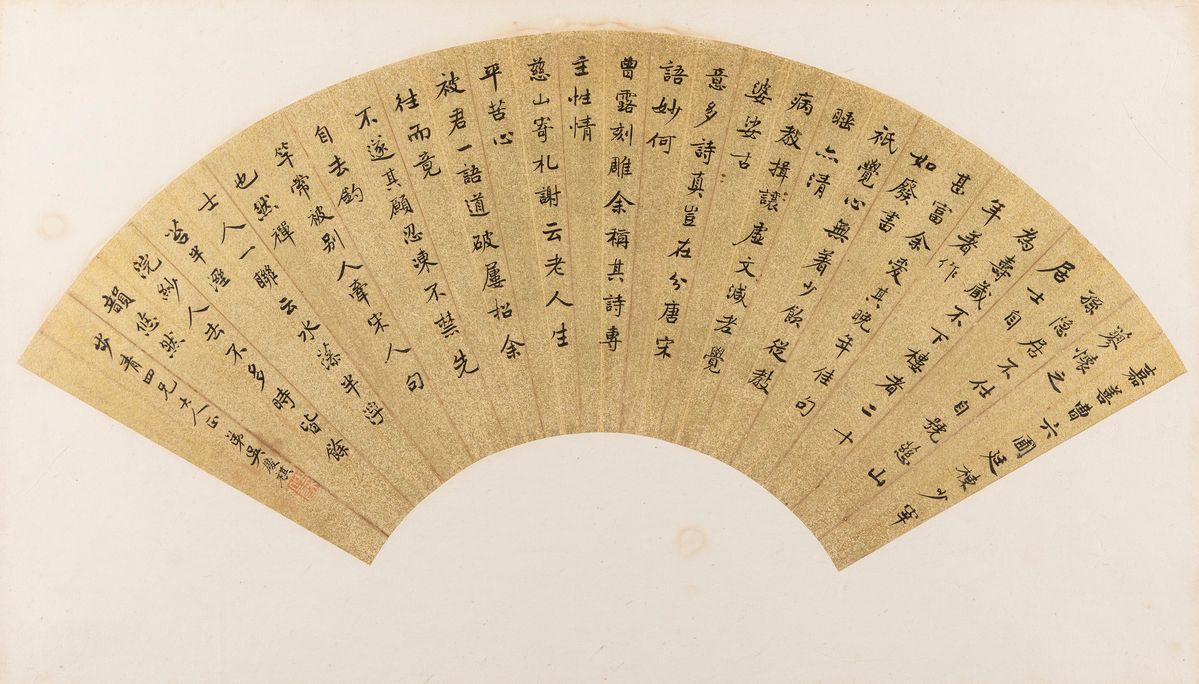 嘉善曹六圃廷棟少宰
蓼懷之
孫隱居不仕自號慈山
居士自
為壽藏不下樓者二十
年著作
甚富余愛其晚年佳句
如廢書
祇覺心無著少飲從教
睡亦清
病教揖讓虛文減老覺
婆娑古
意多詩真豈在分唐宋
語妙何
曾露刻雕余稱其詩專
主性情
慈山寄札謝云老人生
平苦心
被君一語道破屢招余
往而竟
不遂其願忍凍不禁先
自去釣
竿常被別人牽宋人句
也然禪
士人一聯云水滌半浮
苔半溼
浣紗人去不多時皆餘
韻悠然
青四兄大人正 弟吳慶祺